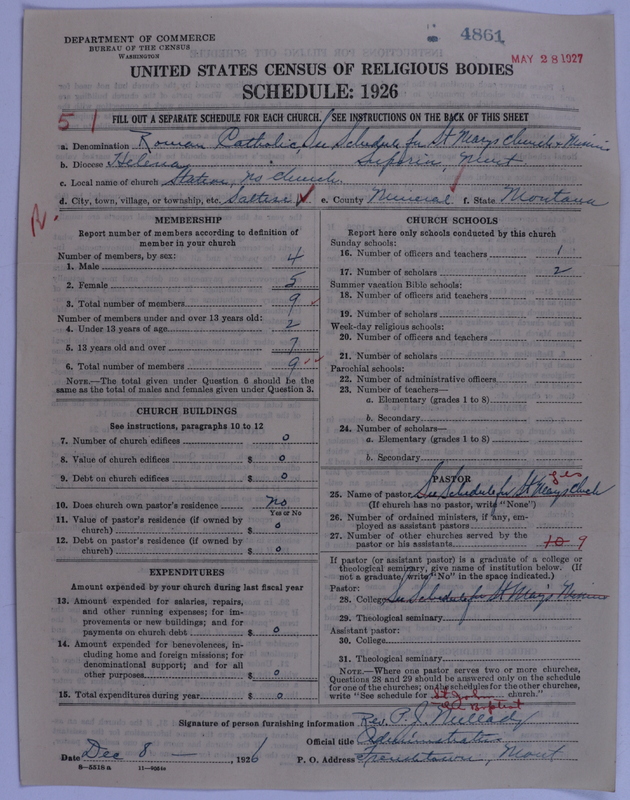 DEPARTMENT OF COMMERCE
BUREAU OF THE CENSUS
WASHINGTON
4861
MAY 28 1927
UNITED STATES CENSUS OF RELIGIOUS BODIES
SCHEDULE: 1926
51
FILL OUT A SEPARATE SCHEDULE FOR EACH CHURCH. SEE INSTRUCTIONS ON THE BACK OF THIS SHEET
a. Denomination Roman Catholic, See Schedule for St Marys Church & Missions
b. Diocese Helena Superior, Mont
c. Local name of church Station, no church.
d. City, town, village, or township, etc. Saltese e. County Mineral f. State Montana
R.
MEMBERSHIP
Report number of members according to definition of member in your church
Number of members, by sex:
1. Male 4
2. Female 5
3. Total number of members 9
Number of members under and over 13 years old:
4. Under 13 years of age 2
5. 13 years old and over 7
6. Total number of members 9
NOTE.—The total given under Question 6 should be the same as the total of males and females given under Question 3.
CHURCH BUILDINGS
See instructions, paragraphs 10 to 12
7. Number of church edifices 0
8. Value of church edifices $ 0
9. Debt on church edifices $ 0
10. Does church own pastor's residence no
Yes or No
11. Value of pastor's residence (if owned by church) $ 0
12. Debt on pastor's residence (if owned by church) $ 0
EXPENDITURES
Amount expended by your church during last fiscal year
13. Amount expended for salaries, repairs, and other running expenses; for improvements or new buildings; and for payments on church debt $ 0
14. Amount expended for benevolences, including home and foreign missions; for denominational support; and for all other purposes $ 0
15. Total expenditures during year $ 0
CHURCH SCHOOLS
Report here only schools conducted by this church
Sunday schools:
16. Number of officers and teachers 1
17. Number of scholars 2
Summer vacation Bible schools:
18. Number of officers and teachers
19. Number of scholars
Week-day religious schools:
20. Number of officers and teachers
21. Number of scholars
Parochial schools:
22. Number of administrative officers
23. Number of teachers—
a. Elementary (grades 1 to 8)
b. Secondary
24. Number of scholars—
a. Elementary (grades 1 to 8)
b. Secondary
PASTOR yes
25. Name of pastor See Schedule for St Marys Church
(If church has no pastor, write "None")
26. Number of ordained ministers, if any, employed as assistant pastors
27. Number of other churches served by the pastor or his assistants 10 9
If pastor (or assistant pastor) is a graduate of a college or theological seminary, give name of institution below. (If not a graduate, write "No" in the space indicated.)
Pastor:
28. College See Schedule for St Mary's Missions
29. Theological seminary
Assistant pastor:
30. College
31. Theological seminary
NOTE.—Where one pastor serves two or more churches, Questions 28 and 29 should be answered only on the schedule for one of the churches; on the schedules for the other churches, write "See schedule for St John church."
the Baptist
Signature of person furnishing information Rev. P. J. Mullady
Official title Administrator
Date Dec 8 —, 1926 P. O. Address Frenchtown, Mont
8-5518 a